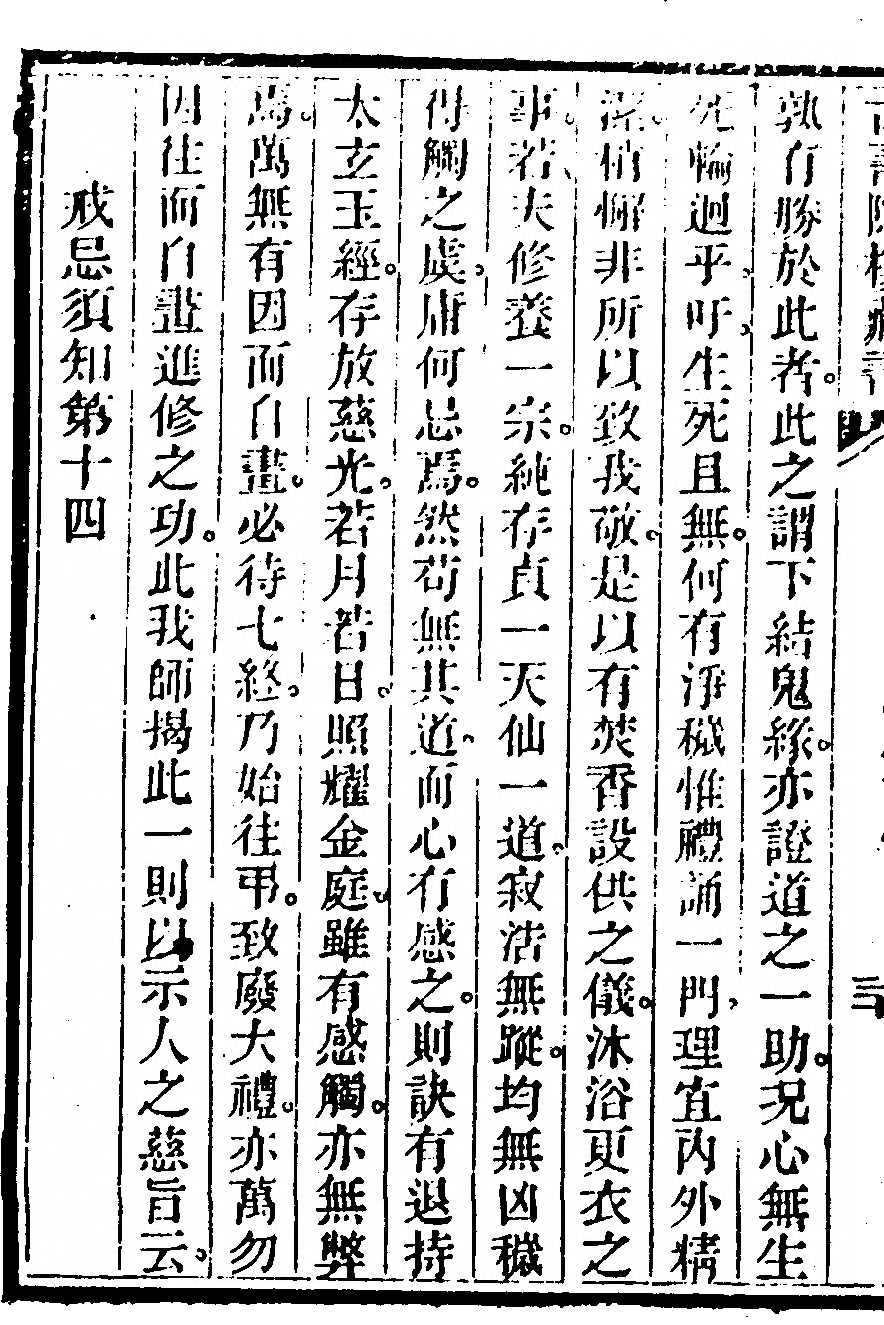 孰有勝於此者。此之謂下結鬼緣。亦證道之一助。況心無生
死輪迴乎、吁、生死且無。何有淨穢、惟禮誦一門、理宜內外精
潔。稍懈非所以致我敬。是以有焚香設供之儀。沐浴更衣之
事。若夫修養一宗。純存貞一天仙一道。寂沽無蹤。均無凶穢
得觸之虞。庸何忌焉。然苟無其道。而心有感之。則訣有退持
太玄玉經。存放慈光。若月若日。照耀金庭。雖有感觸。亦無弊
焉。萬無有因而自畫。必待七終。乃始往弔。致廢大禮。亦萬勿
因往而自畫進修之功。此我師揭此一則以示人之慈旨云。
戒忌須知第十四